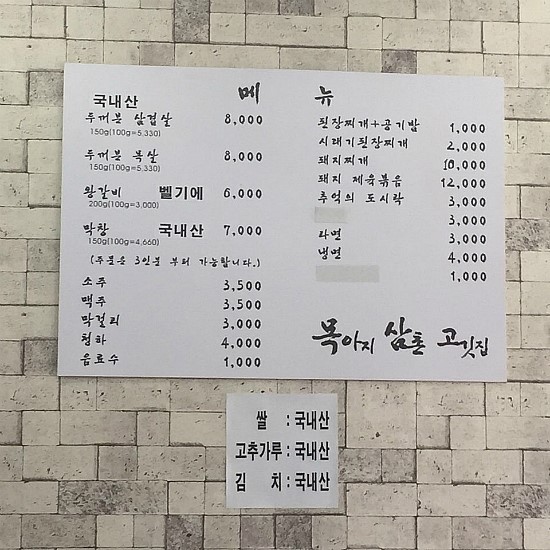 메 뉴
국내산
두꺼분 삼겹살 8,000
150g(100g=5,330)
두꺼분 목살 8,000
150g(100g=5,330)
왕갈비 벨기에 6,000
200g(100g=3,000)
막창 국내산 7,000
150g(100g=4,660)
(주문은 3인분 부터 가능합니다.)
소주 3,500
맥주 3,500
막걸리 3,000
청하 4,000
음료수 1,000
된장찌개+공기밥 1,000
시래기된장찌개 2,000
돼지찌개 10,000
돼지 제육볶음 12,000
추억의 도시락 3,000
3,000
라면 3,000
냉면 4,000
1,000
목아지 삼촌 고깃집
쌀 : 국내산
고추가루 : 국내산
김 치 : 국내산